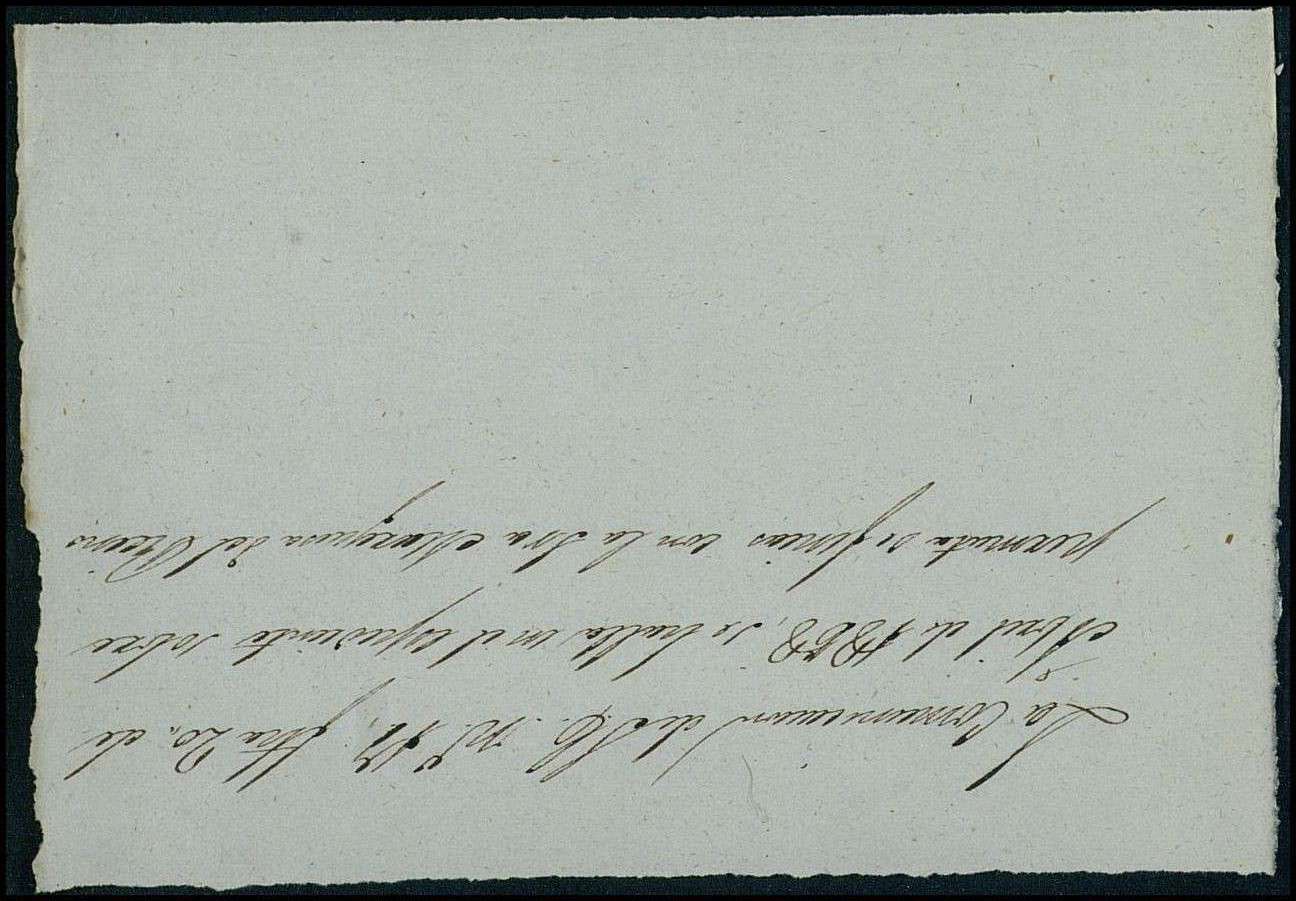 La Comunicacion de H. nº 87, fha 20, de
Abril de 1858, se halla en el espediente sobre
permuta de fincas con la Sra Marquesa del